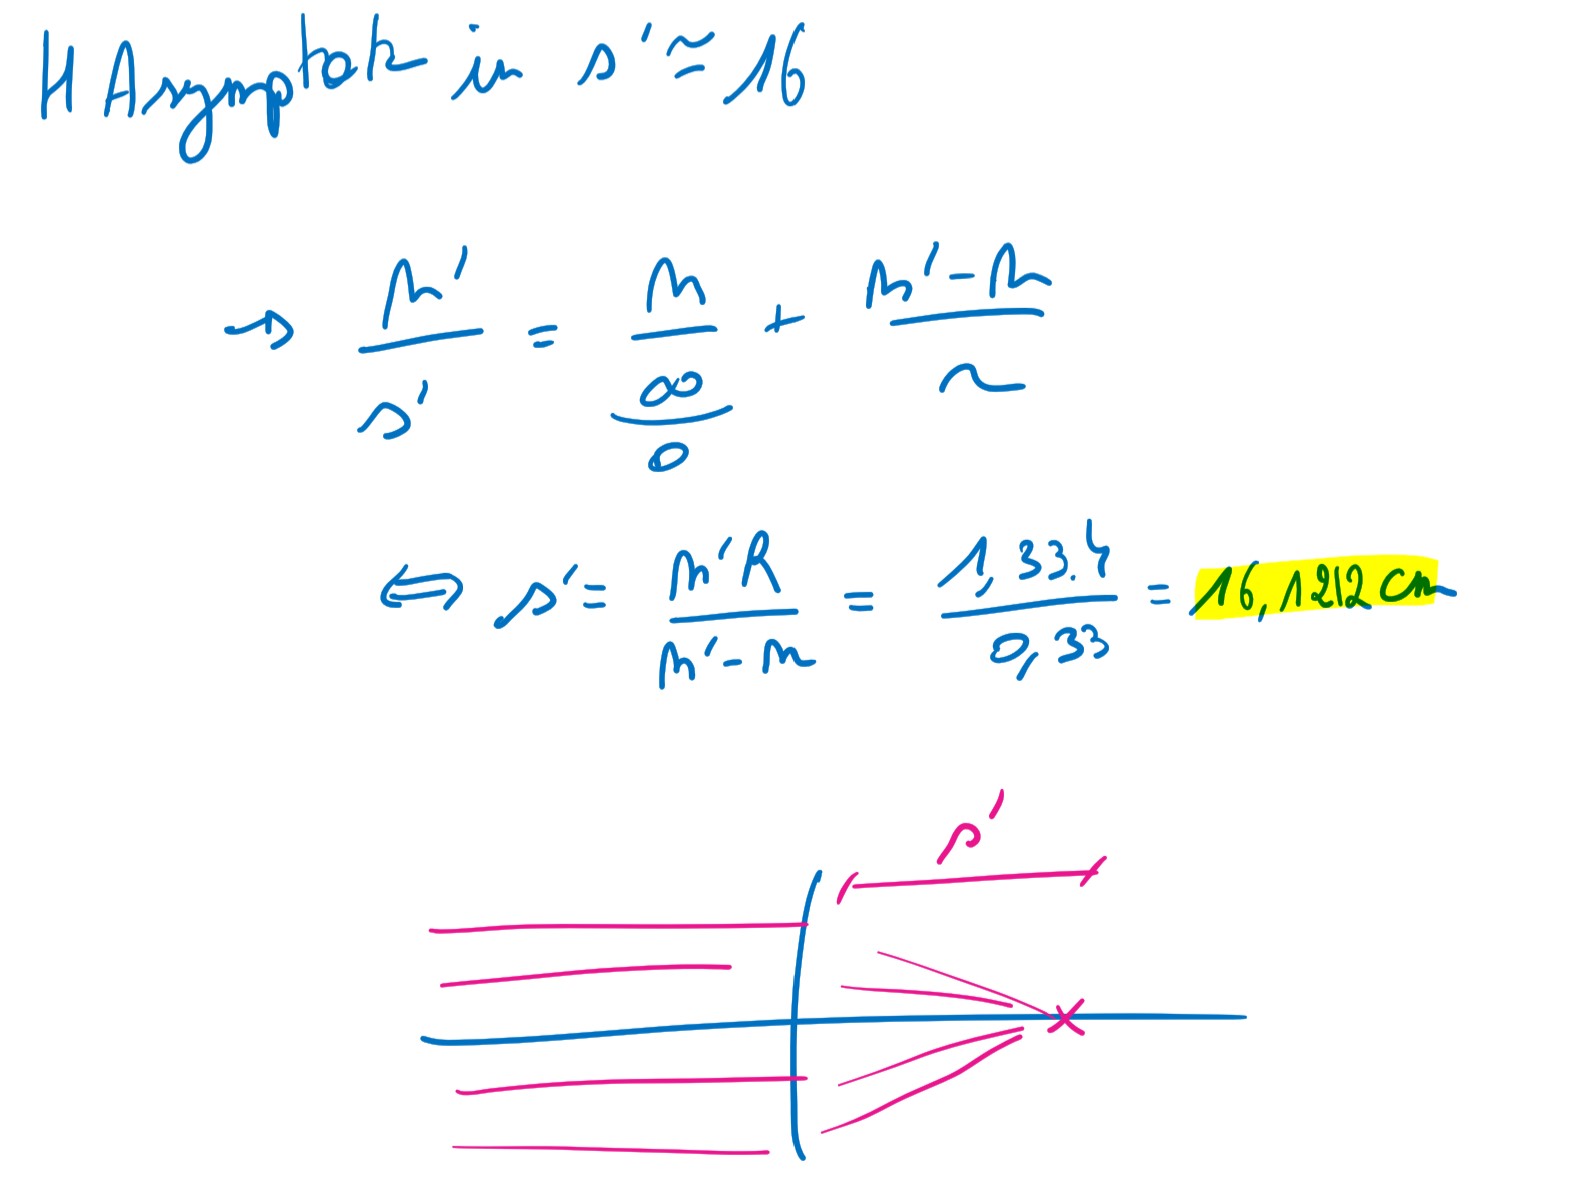 H Asymptoot in s' ≃ 16
→ n'/s' = n/∞ + (n'-n)/r
0
⇔ s' = n'R/(n'-n) = 1,33.4/0,33 = 16,1212 cm
s'